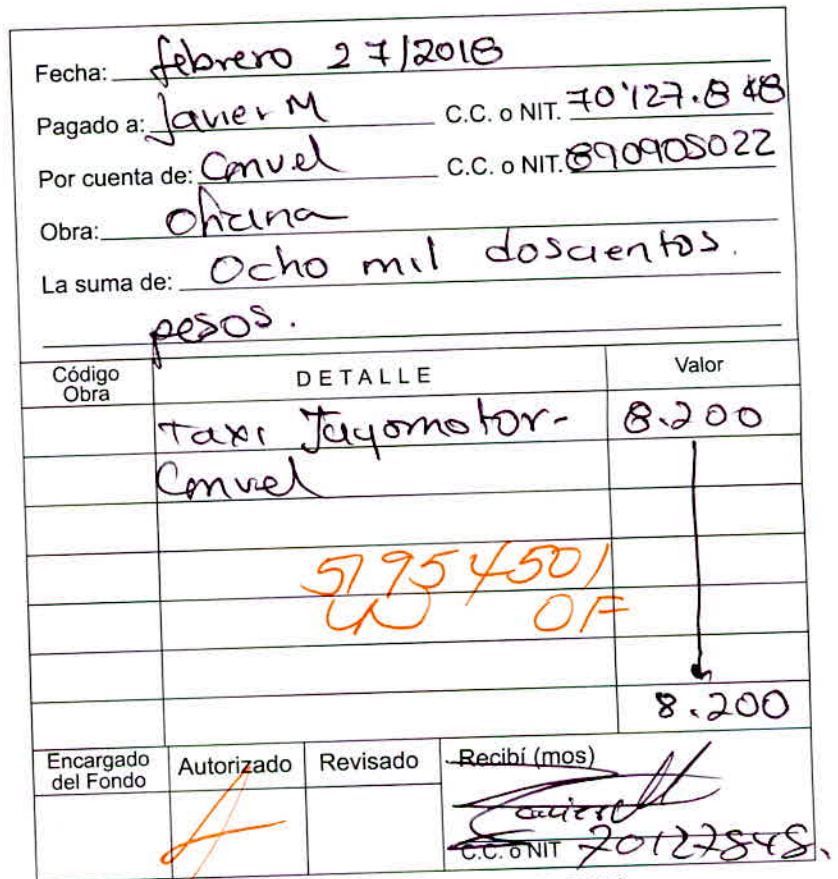 Fecha: febrero 27/2018
Pagado a: Javier M C.C. o NIT. 70'127.848
Por cuenta de: Convel C.C. o NIT. 890905022
Obra: Oficina
La suma de: Ocho mil doscientos.
pesos.
Código Obra DETALLE Valor
Taxi Tayomotor- 8.200
Convel
51954501
OF
8.200
Encargado del Fondo Autorizado Revisado Recibí (mos)
Javier M
C.C. o NIT 70127848.